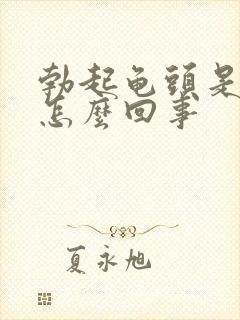 勃起龟頭是
怎麼回事
夏永旭